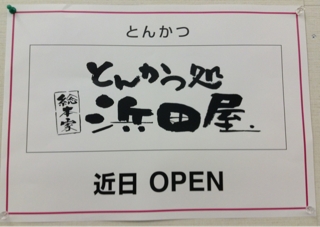 とんかつ
とんかつ処
総本家
浜田屋.
近日 OPEN